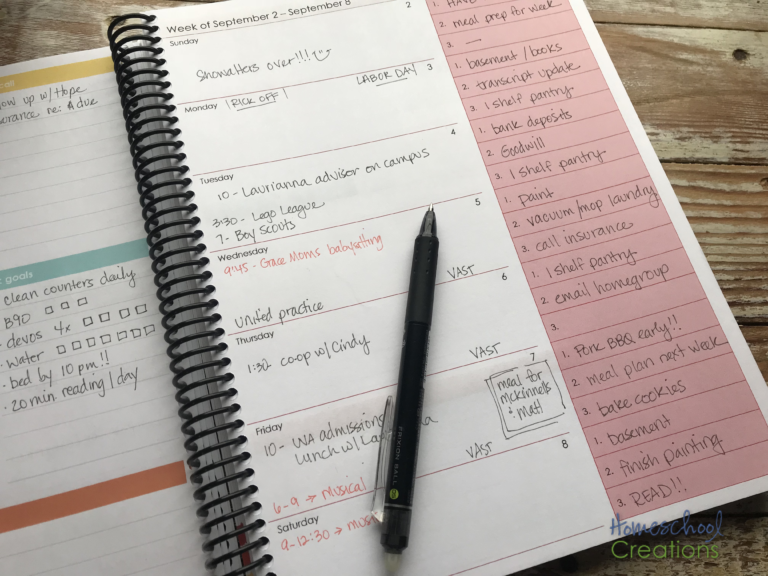 up w/ Hope
re: due
goals
clean counters daily
B90
devos 4x
water
bed by 10 pm!!
20 min reading / day
Week of September 2 – September 8
Sunday
2
Showalters over!!!
Monday
KICK OFF
LABOR DAY
3
Tuesday
4
10 - Laurianna advisor on campus
3:30 - Lego League
7 - Boy Scouts
Wednesday
5
9:45 - Grace Moms babysitting
VAST
United practice
Thursday
6
1:30 co-op w/ Cindy
VAST
Friday
7
10 - WA admissions
Lunch w/
meal for
mckinnells
+ matt
VAST
6-9 → musical
Saturday
8
9-12:30 →
1.
2. meal prep for week
3. —
1. basement / books
2. transcript update
3. 1 shelf pantry
1. bank deposits
2. Goodwill
3. 1 shelf pantry
1. paint
2. vacuum/mop laundry
3. call insurance
1. 1 shelf pantry
2. email homegroup
3.
1. Pork BBQ early!!
2. meal plan next week
3. bake cookies
1. basement
2. finish painting
3. READ!!
FRIXION BALL
Homeschool
Creations